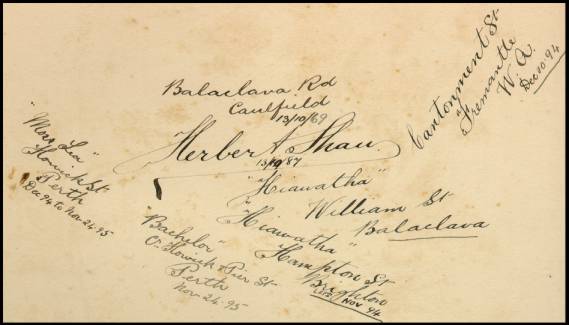 Balaclava Rd
Caulfield
13/10/69
Herbert A. Shaw.
13/10/87
"Hiawatha"
William St
Balaclava
"Hiawatha"
Hampton St
Brighton
Nov 94
Cantonment St
Fremantle
W. A.
Dec 10. 94
"Lea"
Howick St
Perth
Dec 94 to Nov 24. 95
"Bachelor"
Cr Howick & Pier St
Perth
Nov 24. 95